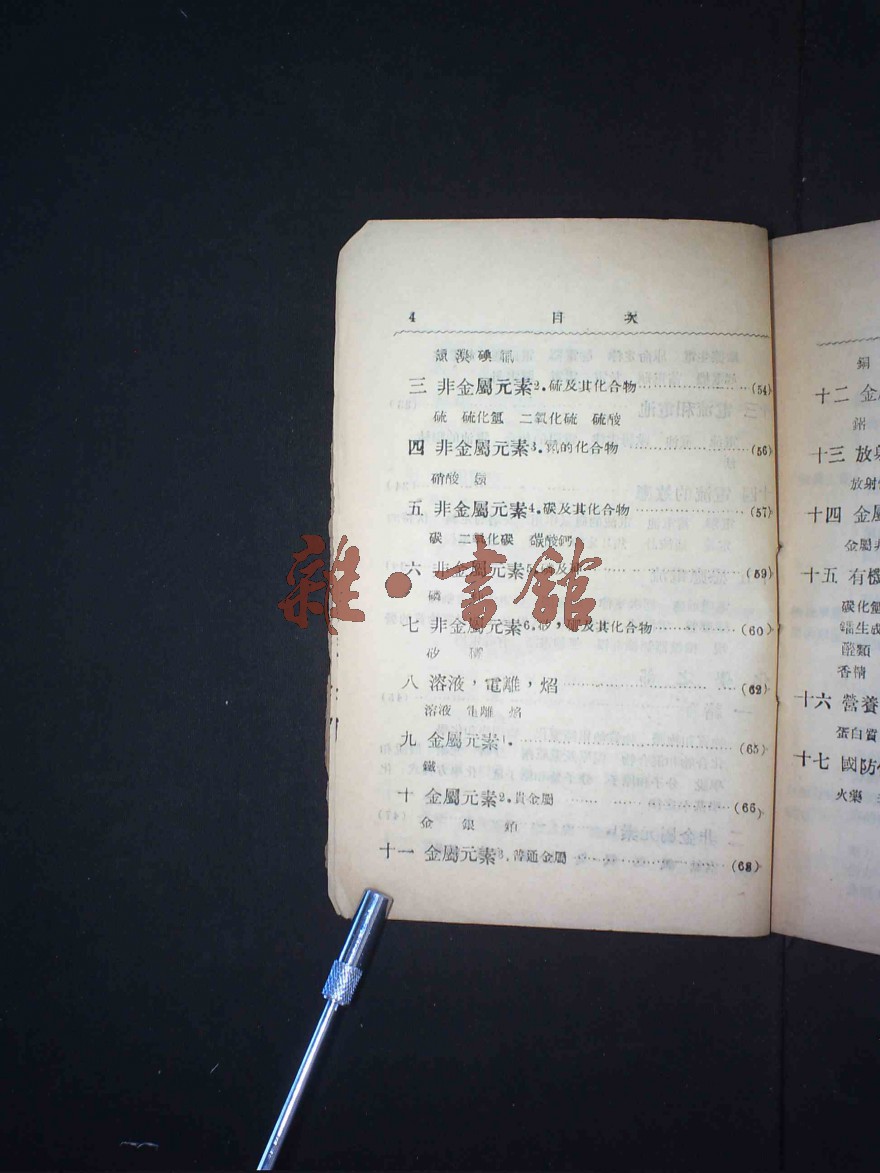 4 目 次
溴 碘
三 非金屬元素2.硫及其化合物 (54)
硫 硫化氫 二氧化硫 硫酸
四 非金屬元素3.氮的化合物 (56)
硝酸
五 非金屬元素4.碳及其化合物 (57)
碳 二氧化碳 碳酸鈣
六 非金屬元素 (59)
磷
七 非金屬元素6.矽,硼及其化合物 (60)
矽
八 溶液,電離,焰 (62)
溶液 電離 焰
九 金屬元素1. (65)
鐵
十 金屬元素2.貴金屬 (66)
金 銀 鉑
十一 金屬元素3.普通金屬 (68)
銅
十二 金
鋁
十三 放射
放射
十四 金屬
金屬非
十五 有機
碳化氫
醛類
香精
十六 營養
蛋白質
十七 國防
火藥
雜·書館